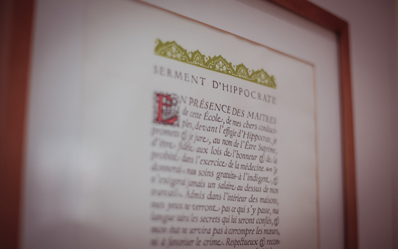 SERMENT D'HIPPOCRATE
EN PRÉSENCE DES MAITRES
de cette École, de mes chers condisci-
ples, devant l'effigie d'Hippocrate, je
promets & je jure, au nom de l'Être Suprême,
d'être fidèle aux lois de l'honneur & de la
probité dans l'exercice de la médecine.
donnerai mes soins gratuits à l'indigent, &
n'exigerai jamais un salaire au dessus de mon
travail. Admis dans l'intérieur des maisons,
mes yeux ne verront pas ce qui s'y passe, ma
langue taira les secrets qui lui seront confiés, &
mon état ne servira pas à corrompre les mœurs,
ni à favoriser le crime. Respectueux & recon-